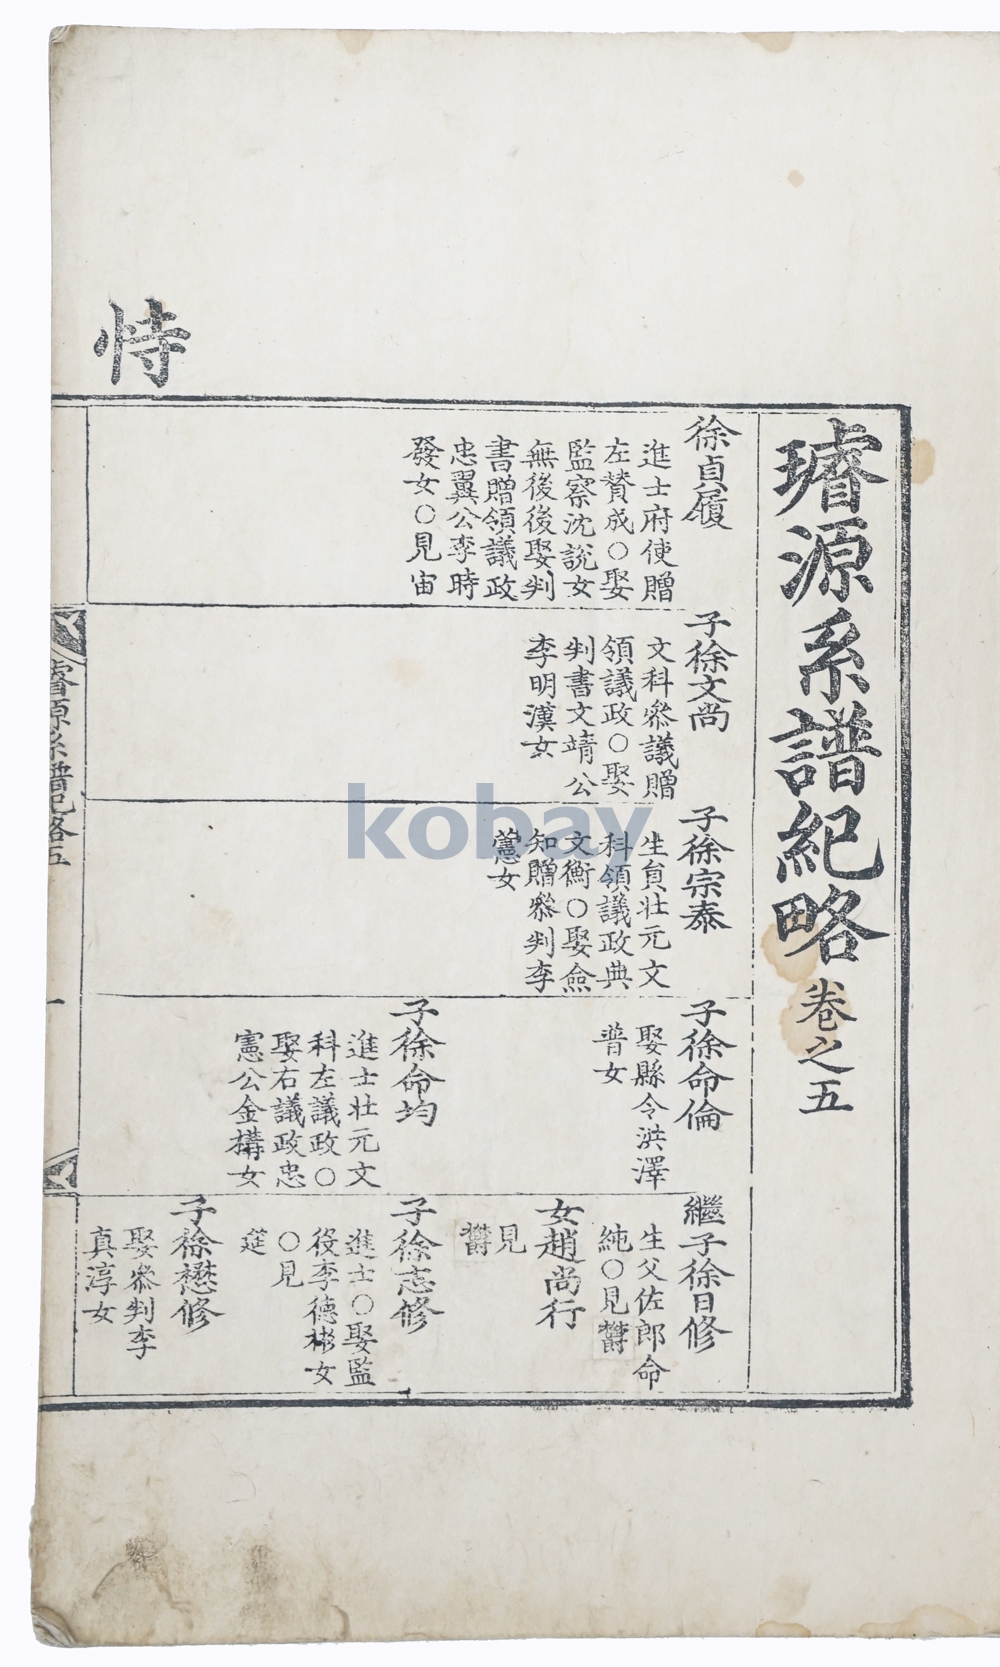 璿源系譜紀略 卷之五
恃
徐貞履
進士府使贈
左賛成○娶
監察沈說女
無後後娶判
書贈領議政
忠翼公李時
發女○見宙
子徐文尚
文科叅議贈
領議政○娶
判書文靖公
李明漢女
子徐宗泰
生員壯元文
科領議政典
文衡○娶僉
知贈叅判李
藼女
子徐命倫
娶縣令洪澤
普女
子徐命均
進士壯元文
科左議政○
娶右議政忠
憲公金構女
繼子徐日修
生父佐郎命
純○見欝
女趙尚行
見
欝
子徐志修
進士○娶監
役李德彬女
○見
筵
子徐懋修
娶叅判李
真淳女
璿源系譜紀略五
一
kobay